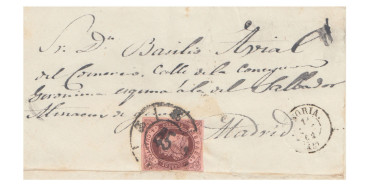 Sr. Dn. Basilio Avial
del Comercio. Calle de la Concepcion
Geronima esquina a la del Salbador
Almacen de
Madrid
SORIA